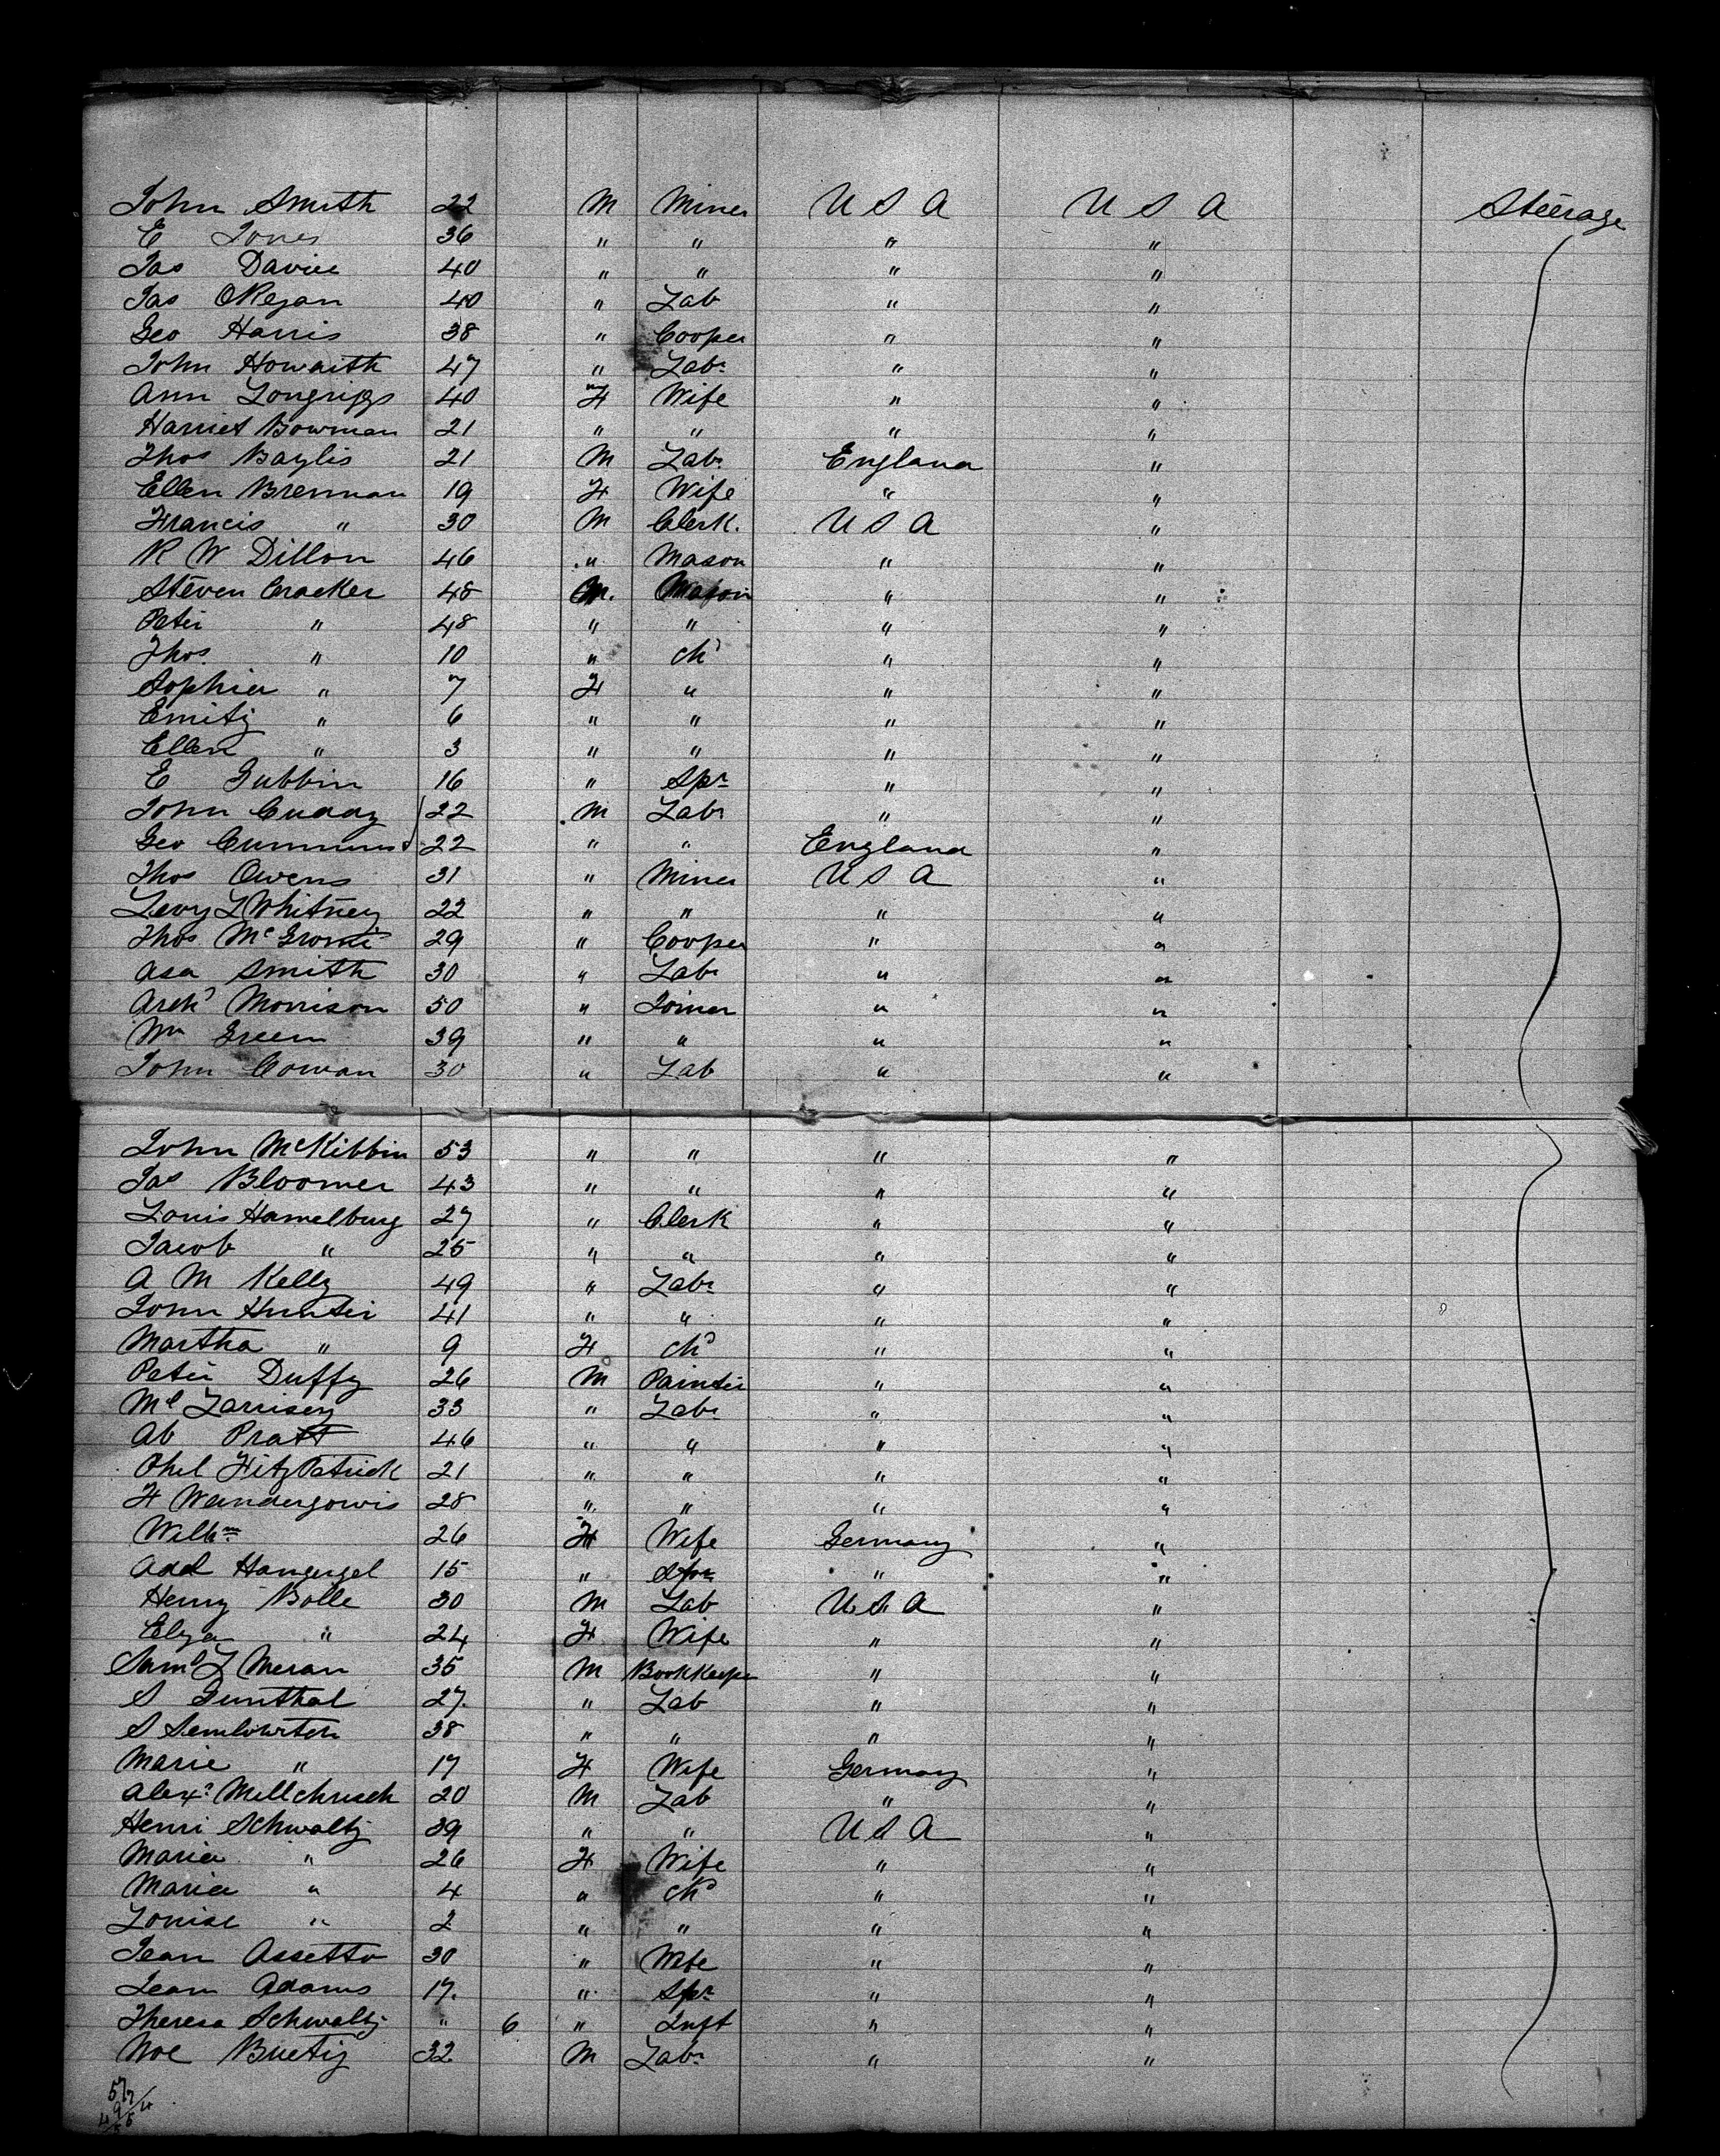 John Smith 22 M Miner U S A U S A Steerage
E Jones 36 " " " "
Jas Davies 40 " " " "
Jas O'Regan 40 " Lab " "
Geo Harris 38 " Cooper " "
John Howarth 47 " Labr " "
Ann Longriggs 40 F Wife " "
Harriet Bowman 21 " " " "
Thos Baylis 21 M Labr England "
Ellen Brennan 19 F Wife " "
Francis " 30 M Clerk. U S A "
R W Dillon 46 " Mason " "
Steven Cracker 48 M. Mason " "
Peter " 48 " " " "
Thos " 10 " chd " "
Sophia " 7 F " " "
Emily " 6 " " " "
Ellen " 3 " " " "
E Gubbin 16 " Spr " "
John Cuddy 22 M Labr " "
Geo Cummins 22 " " England "
Thos Owens 31 " Miner U S A "
Levy L Whitney 22 " " " "
Thos 29 " Cooper " "
Asa Smith 30 " Labr " "
Archd Morrison 50 " Joiner " "
Wm Green 39 " " " "
John Cowan 30 " Lab " "
John McKibbin 53 " " " "
Jas Bloomer 43 " " " "
Louis Hamelburg 27 " Clerk " "
Jacob " 25 " " " "
A M Kelly 49 " Labr " "
John Hunter 41 " " " "
Martha " 9 F chd " "
Peter Duffy 26 M Painter " "
Ml Larrisey 33 " Labr " "
Ab Pratt 46 " " " "
Phil FitzPatrick 21 " " " "
F Wandergowis 28 " " " "
Willm 26 F Wife Germany "
Add 15 " Spr " "
Henry Bolle 30 M Lab U.S.A "
Elza " 24 F Wife " "
Saml L Meran 35 M Bookkeeper " "
S Gunthal 27. " Lab " "
S 38 " " " "
Marie " 17 F Wife Germany "
Alexr Millchrisch 20 M Lab " "
Henri Schwaltz 39 " " U S A "
Maria " 26 F Wife " "
Maria " 4 " chd " "
Louise " 2 " " " "
Jean Assetto 30 " Wife " "
Jean Adams 17. " Spr " "
Theresa Schwaltz " 6 " Inft " "
Noe Buetiz 32 M Labr " "